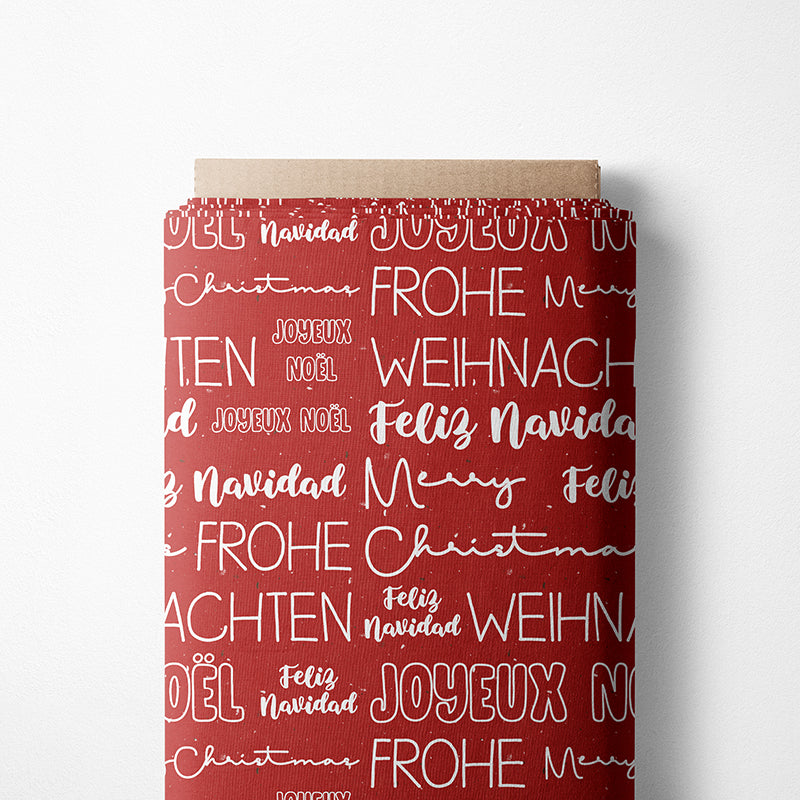 NOËL Navidad JOYEUX NOËL
Christmas FROHE Merry
JOYEUX
NOËL
TEN WEIHNACH
JOYEUX NOËL Feliz Navida
Navidad Merry Feliz
FROHE Christmas
ACHTEN Feliz
Navidad WEIHNA
NOËL Feliz
Navidad JOYEUX NO
Christmas FROHE Merry
JOYEUX